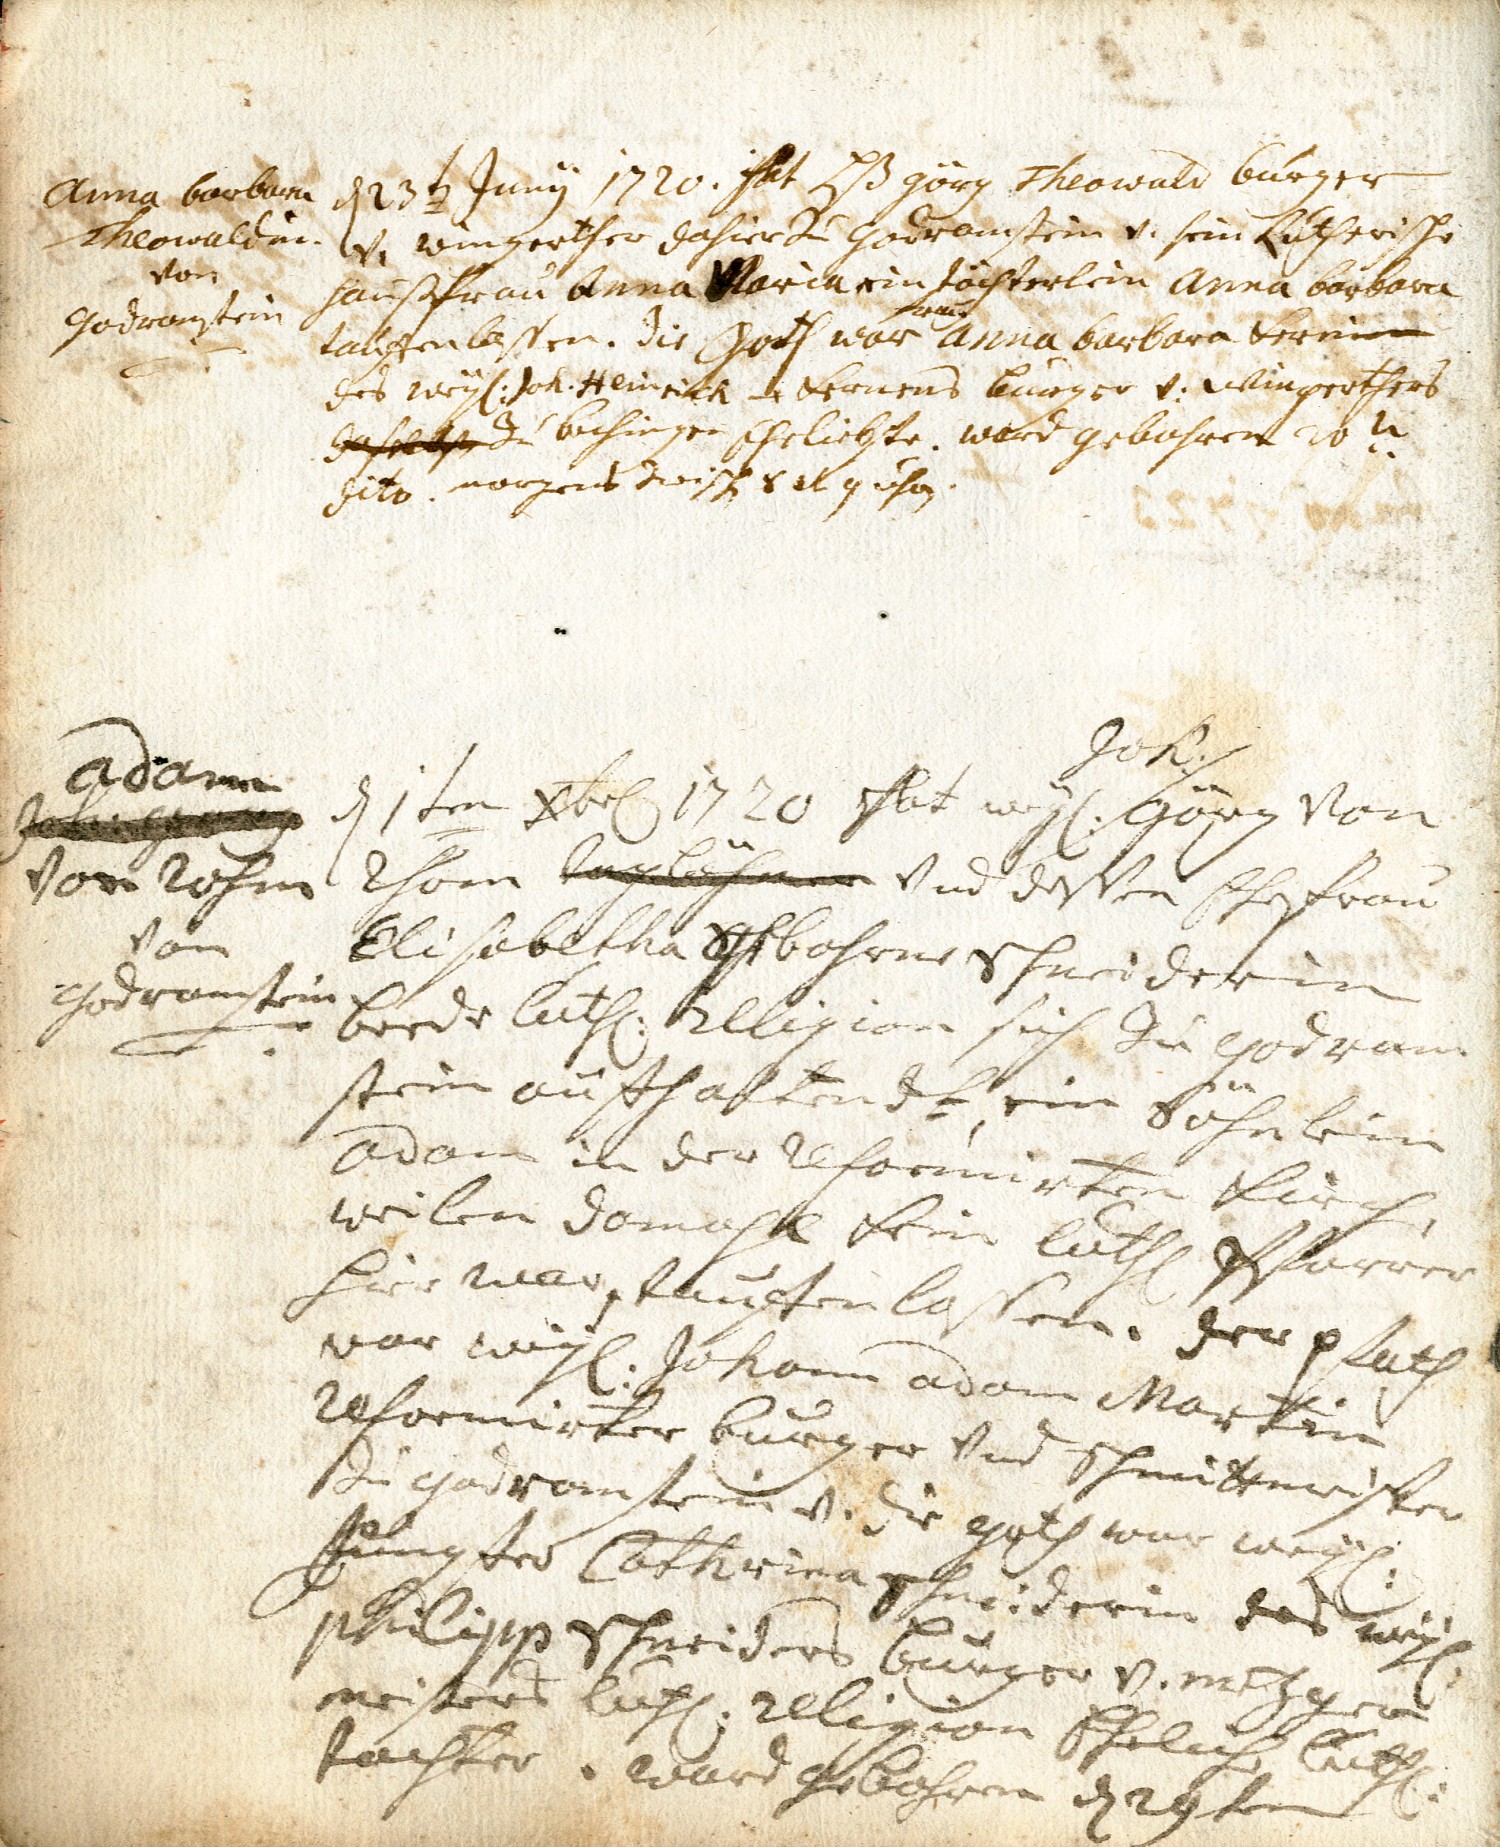 Anna barbara
Theowaldin.
von
Godramstein
d 23t Junÿ 1720. hat Hß görg Theowald burger
v. wingerther dahier zu Godramstein v. sein Lutherische
haußfrau Anna Maria ein töchterlein Anna barbara
tauffen lassen. die Goth war frau Anna barbara
des weÿl: Joh. Heinrich Kernens burger v. wingerthers
daselbst zu bechingen Eheliebste. ward gebohren 20
dito. morgends zwisch 8 et 9 uhr.
adam
von rohm
von
Godramstein
d 1ten Xbr 1720 hat weÿl. Joh. Görg von
Rhom taglöhner und dessen Ehefrau
Elisabetha gebohrne Schneiderin
beede luth: Religion sich zu Godram
stein auffhaltendt, ein Söhnlein
adam in der reformirten Kirch,
weilen damahl kein luth Pfarrer
hier war, tauffen lassen. der pfath
war weÿl: Johann adam Martin
reformirter burger und schmittmeister
zu Godramstein v. die goth war weÿl:
Jungfer Cathrina schneiderin des weÿl:
philipp schneiders burger v. metzger
meisters luth: religion Ehelich luth:
tochter. ward gebohren d 29ten